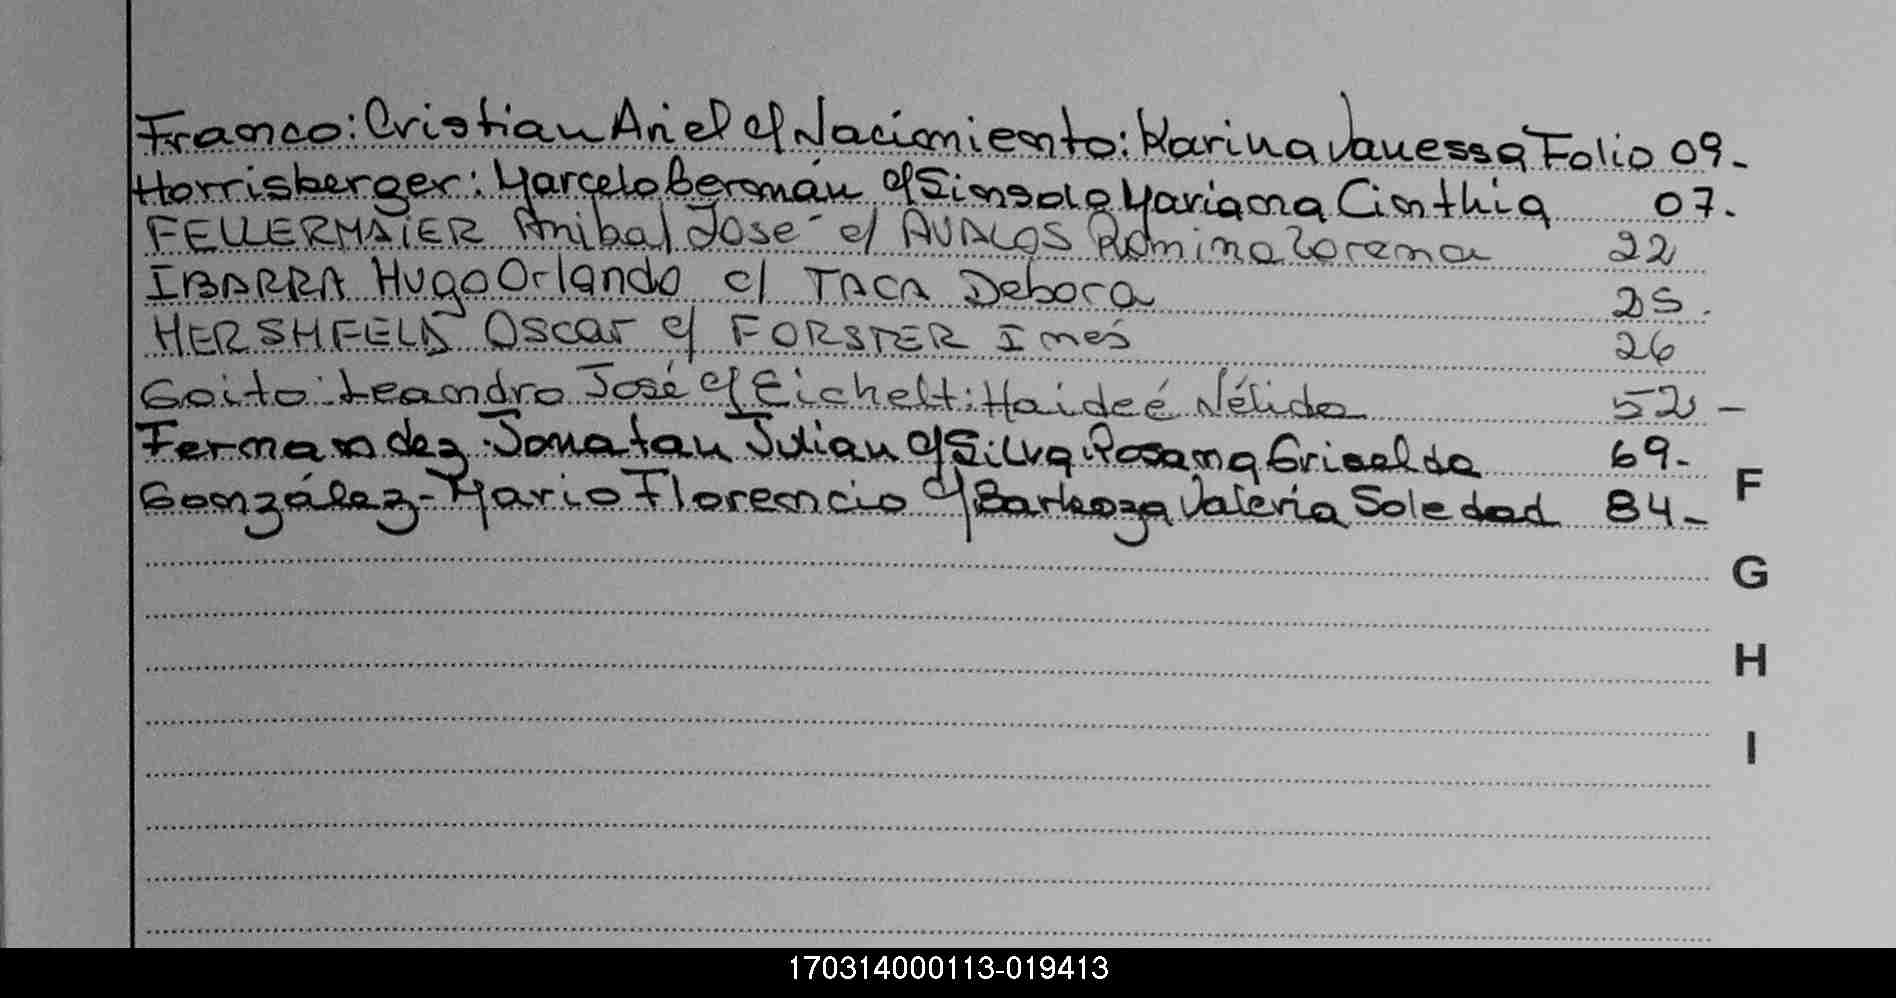 Franco: Cristian Ariel c/ Nacimiento: Karina Vanessa Folio 09.-
Horrisberger: Marcelo Germán c/ Sinsolo Mariana Cinthia 07.
FELLERMAIER Anibal José c/ AVALOS Romina Lorena 22
IBARRA Hugo Orlando c/ TACA Debora 25.
HERSHFELD Oscar c/ FORSTER Inés 26
Goito: Leandro José c/ Eichelt: Haideé Nélida 52 -
Fernandez. Jonatan Julian c/ Silva Rosana Griselda 69.-
González - Mario Florencio c/ Barboza Valeria Soledad 84.-
F
G
H
I
170314000113-019413